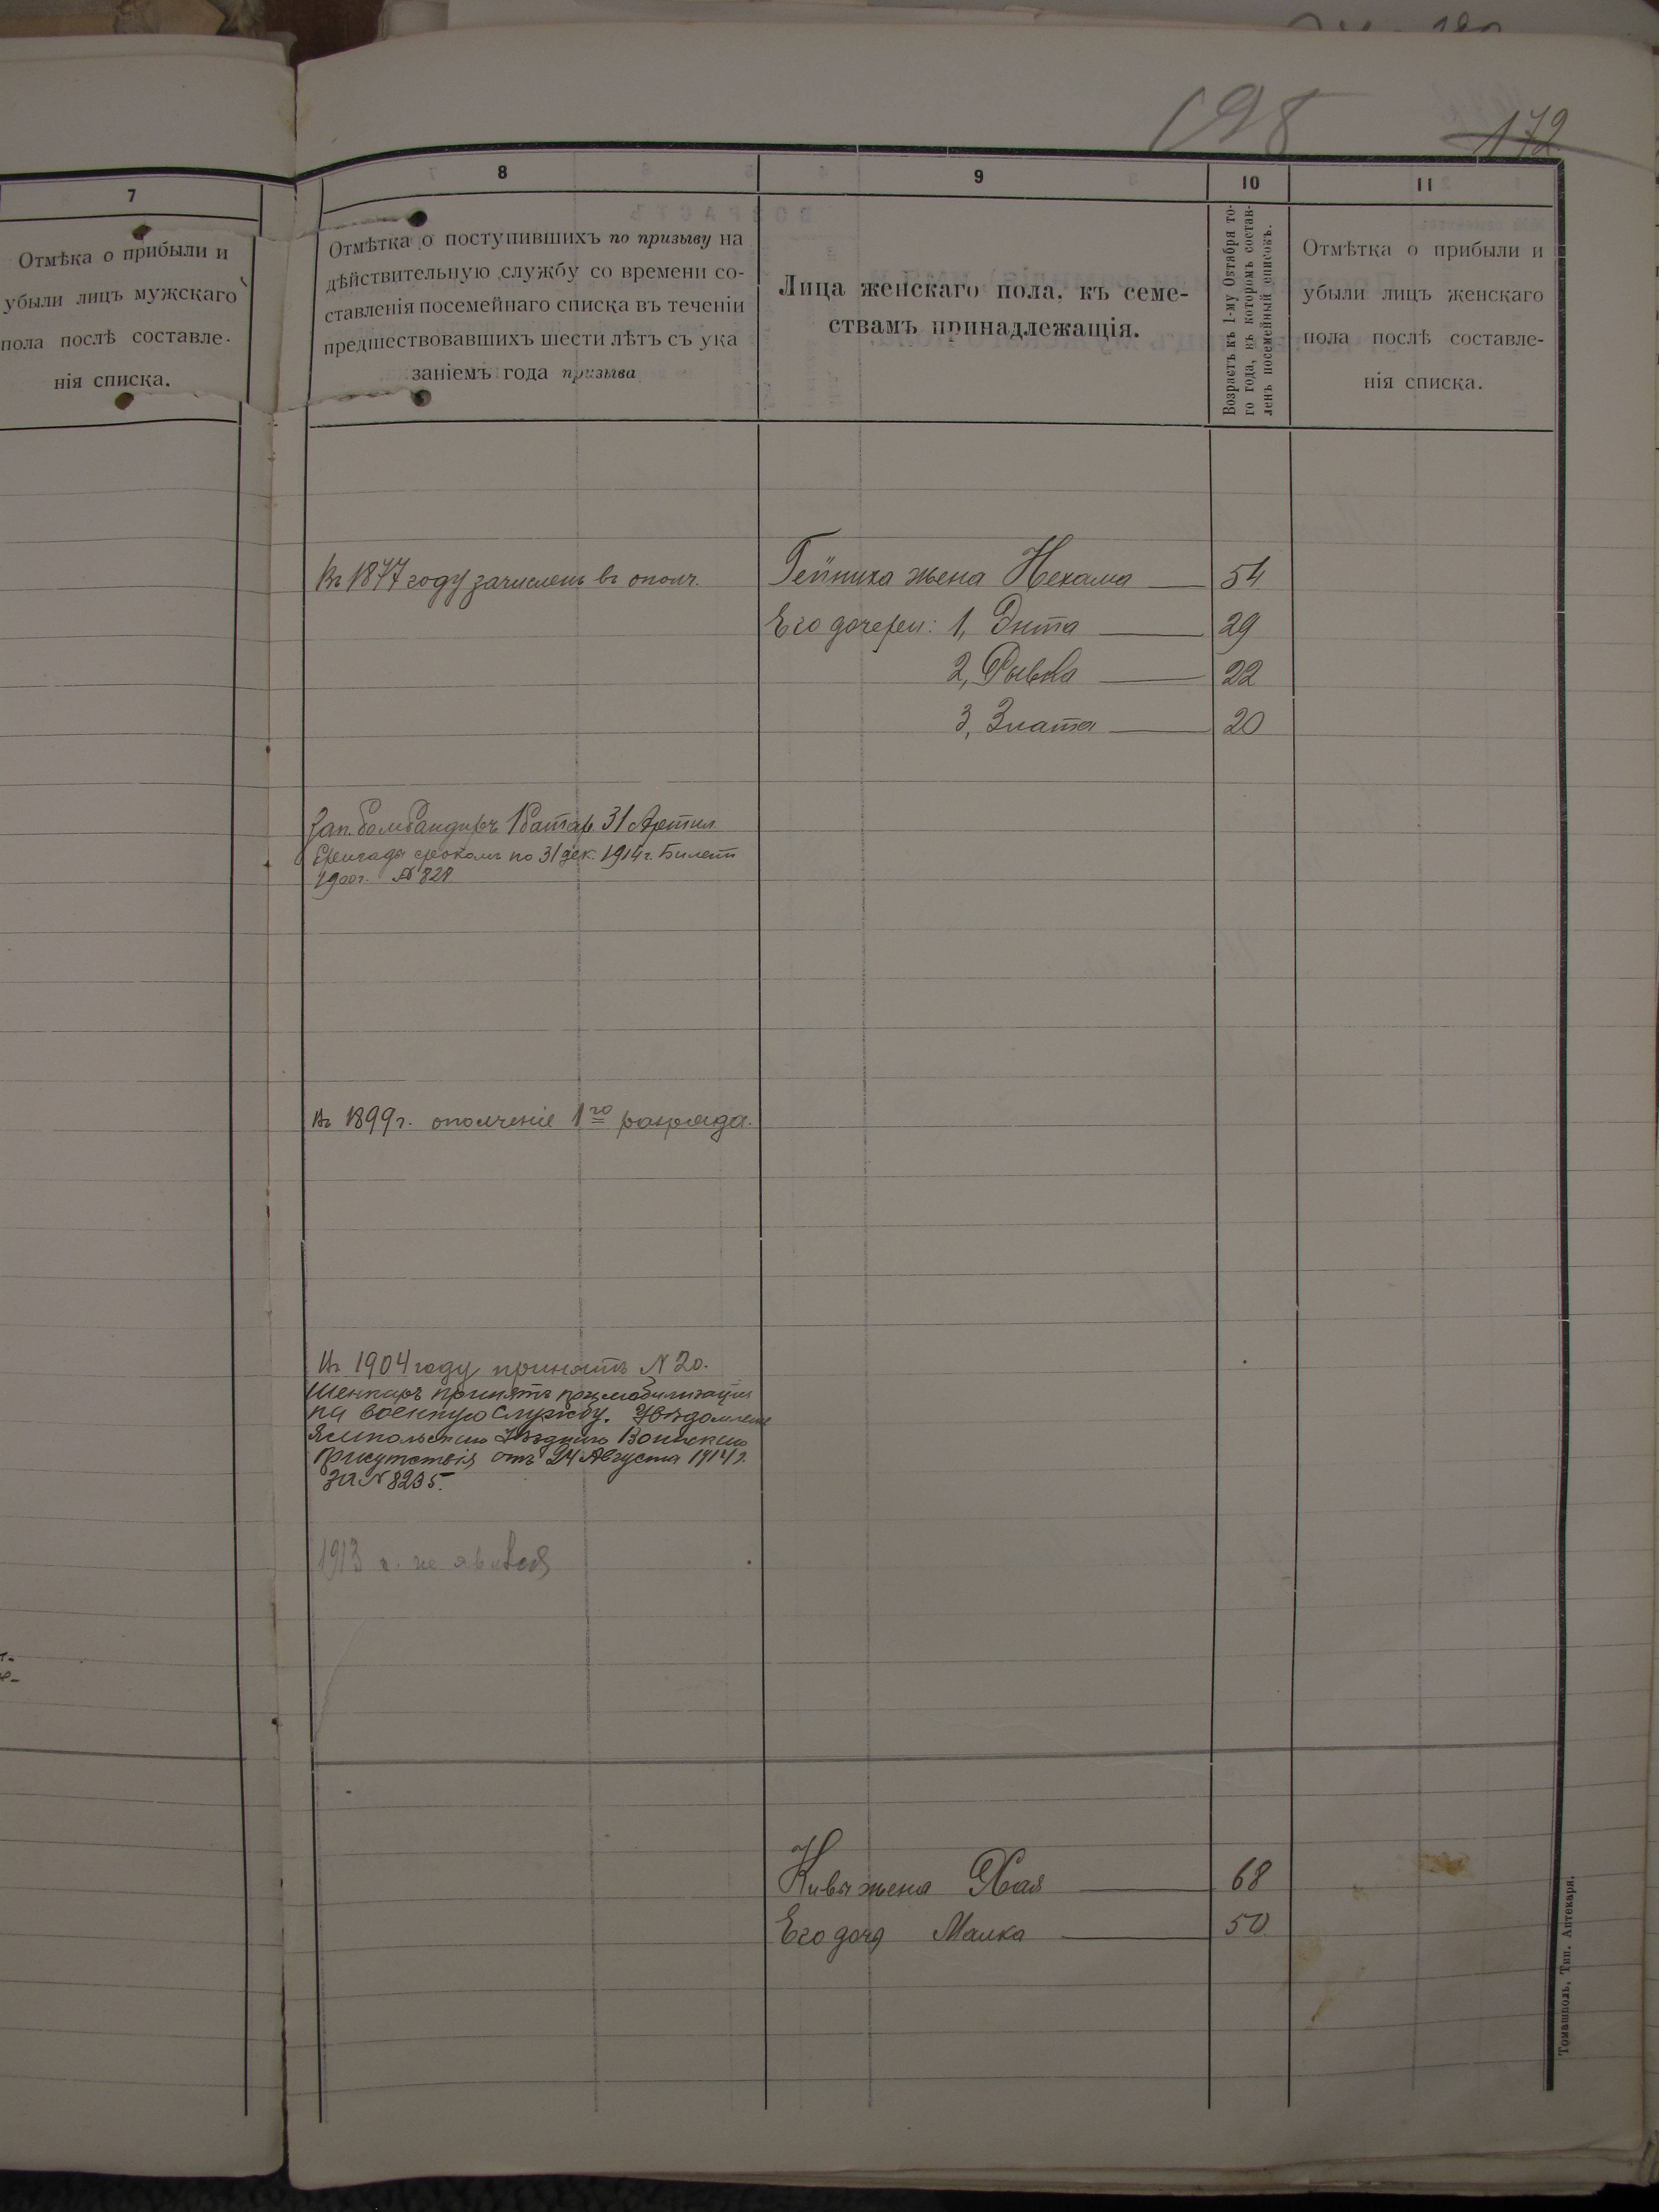 198
172
7
8
9
10
11
Отмѣка о прибыли и
убыли лицъ мужскаго
пола послѣ составле-
нія списка.
Отмѣтка о поступившихъ по призыву на
дѣйствительную службу со времени со-
ставленія посемейнаго списка въ теченіи
предшествовавшихъ шести лѣтъ съ ука
заніемъ года призыва
Лица женскаго пола, къ семе-
ствамъ принадлежащія.
Возрастъ къ 1-му Октября то-
го года, въ которомъ состав-
ленъ посемейный списокъ.
Отмѣтка о прибыли и
убыли лицъ женскаго
пола послѣ составле-
нія списка.
Въ 1877 году зачисленъ въ ополч.
Гейниха жена Нехама 54
Его дочери: 1, Энта 29
2, Рывка 22
3, Злата 20
Зап. бомбандиръ 1 батар. 31 Артил.
бригады срокомъ по 31 дек. 1914 г. Билетъ
1900 г. № 828
Въ 1899 г. ополченіе 1го разряда.
Въ 1904 году принятъ № 20.
Шенкаръ принятъ по мобилизаціи
на военную службу. Увѣдомленіе
Ямпольскаго Уѣзднаго Воинскаго
Присутствія отъ 24 Августа 1914 г.
за № 8235.
1913 г. не явился
Кивы жена Хая 68
Его дочь Малка 50
Томашполь, Тип. Аптекаря.